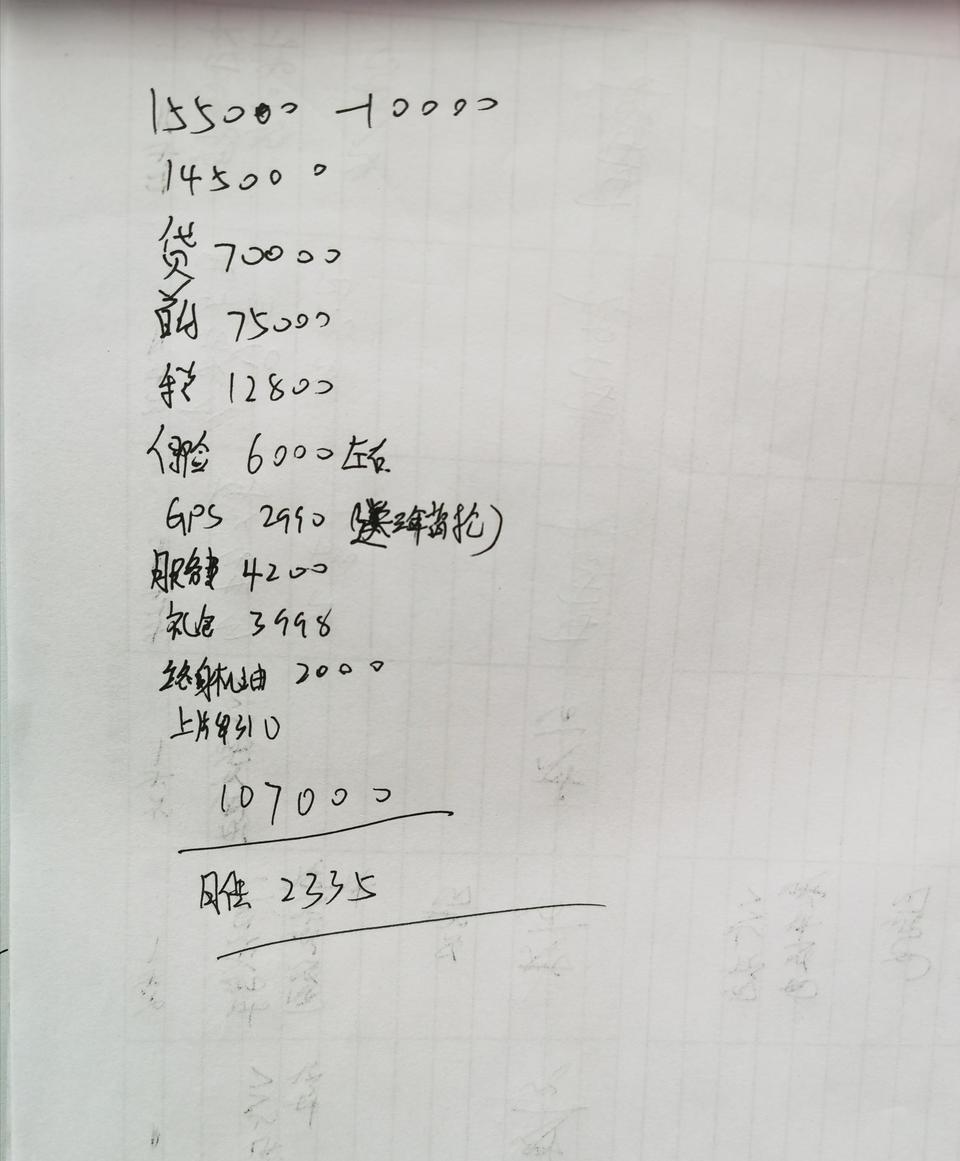 155000 -10000
145000
贷 70000
首付 75000
税 12800
保险 6000左右
GPS 2990 (送三年盗抢)
服务费 4200
礼包 3998
终身机油 2000
上牌牵引 0
107000
月供 2335